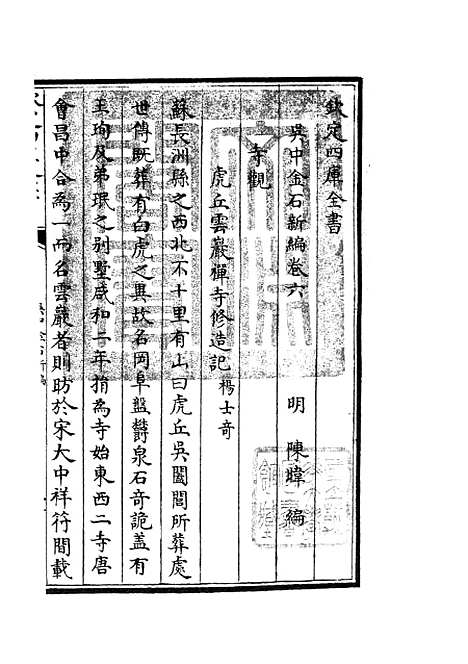 欽定四庫全書
吳中金石新編卷六
明 陳暐 編
寺觀
虎丘雲巖禪寺修造記 楊士奇
蘇長洲縣之西北不十里有山曰虎丘吳闔閭所葬處
世傳既葬有白虎之異故名岡阜盤欝泉石奇詭蓋有
王珣及弟珉之别墅咸和二年捐為寺始東西二寺唐
會昌中合為一而名雲巖者則昉於宋大中祥符間載